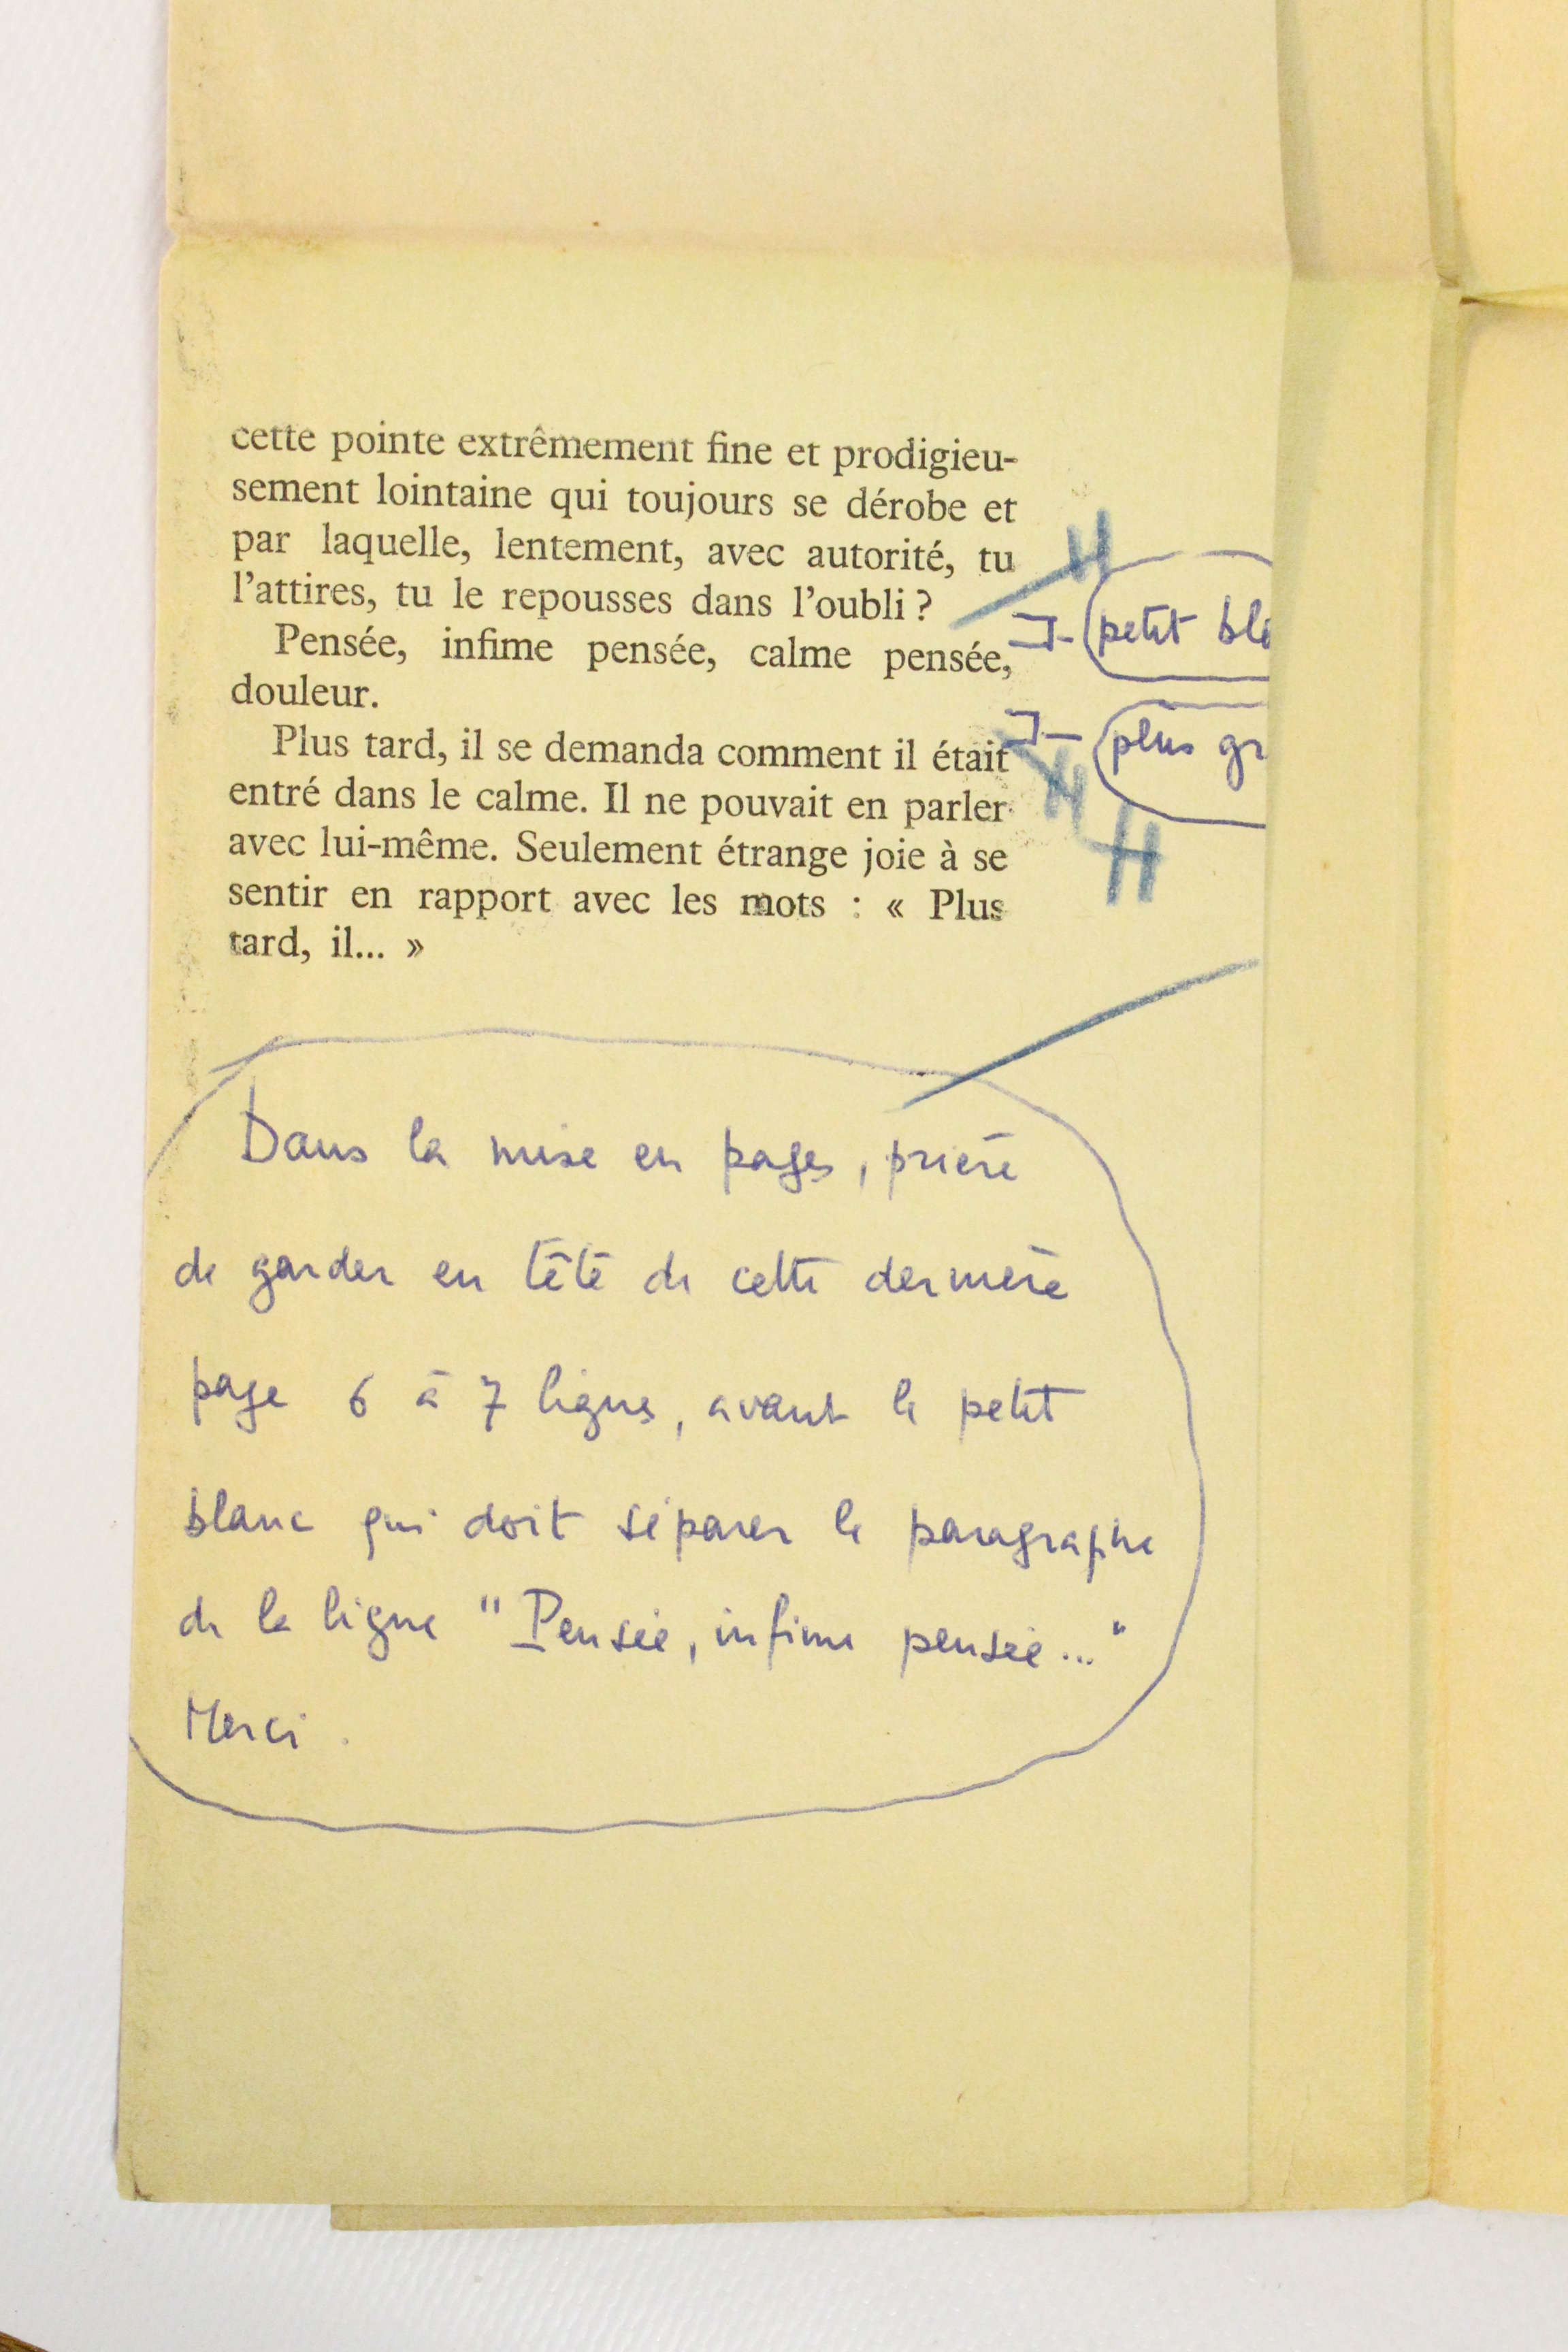 cette pointe extrêmement fine et prodigieu-
sement lointaine qui toujours se dérobe et
par laquelle, lentement, avec autorité, tu
l'attires, tu le repousses dans l'oubli ?
petit bla
Pensée, infime pensée, calme pensée,
douleur.
plus gr
Plus tard, il se demanda comment il était
entré dans le calme. Il ne pouvait en parler
avec lui-même. Seulement étrange joie à se
sentir en rapport avec les mots : « Plus
tard, il... »
Dans la mise en pages, prière
de garder en tête de cette dernière
page 6 à 7 lignes, avant le petit
blanc qui doit séparer le paragraphe
de la ligne "Pensée, infime pensée..."
Merci.